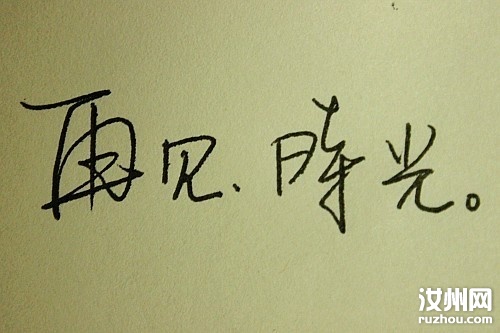 再见、時光。
汝州网
ruzhou.com